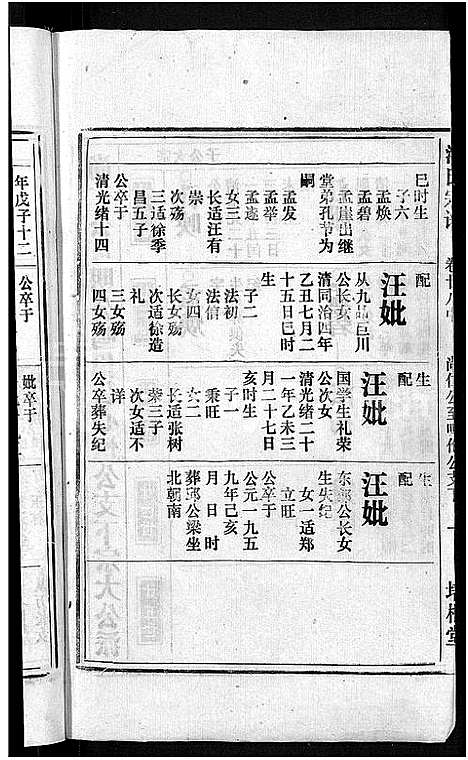 巳时生
子六
孟焕
孟碧
孟崖出继
堂弟孔节为
嗣
孟发
孟遂
女三
长适汪有
崇
次殇
三适徐季
昌五子
公卒于
清光绪十四
配
汪妣
从九品巨川
公长女
清同治四年
乙丑七月二
十五日巳时
生
子二
法初
法信
女四
长女殇
次适徐造
礼
三女殇
四女殇
生
配
汪妣
国学生礼荣
公次女
清光绪二十
一年乙未三
月二十七日
亥时生
子一
秉旺
女二
长适张树
荣三子
次女适不
详
公卒葬失纪
生
配
汪妣
东郡公长女
生失纪
女一适郑
立旺
公卒于
公元一九五
九年己亥
月 日时
葬邱公梁坐
北朝南
年戊子十二
公卒于
妣卒于